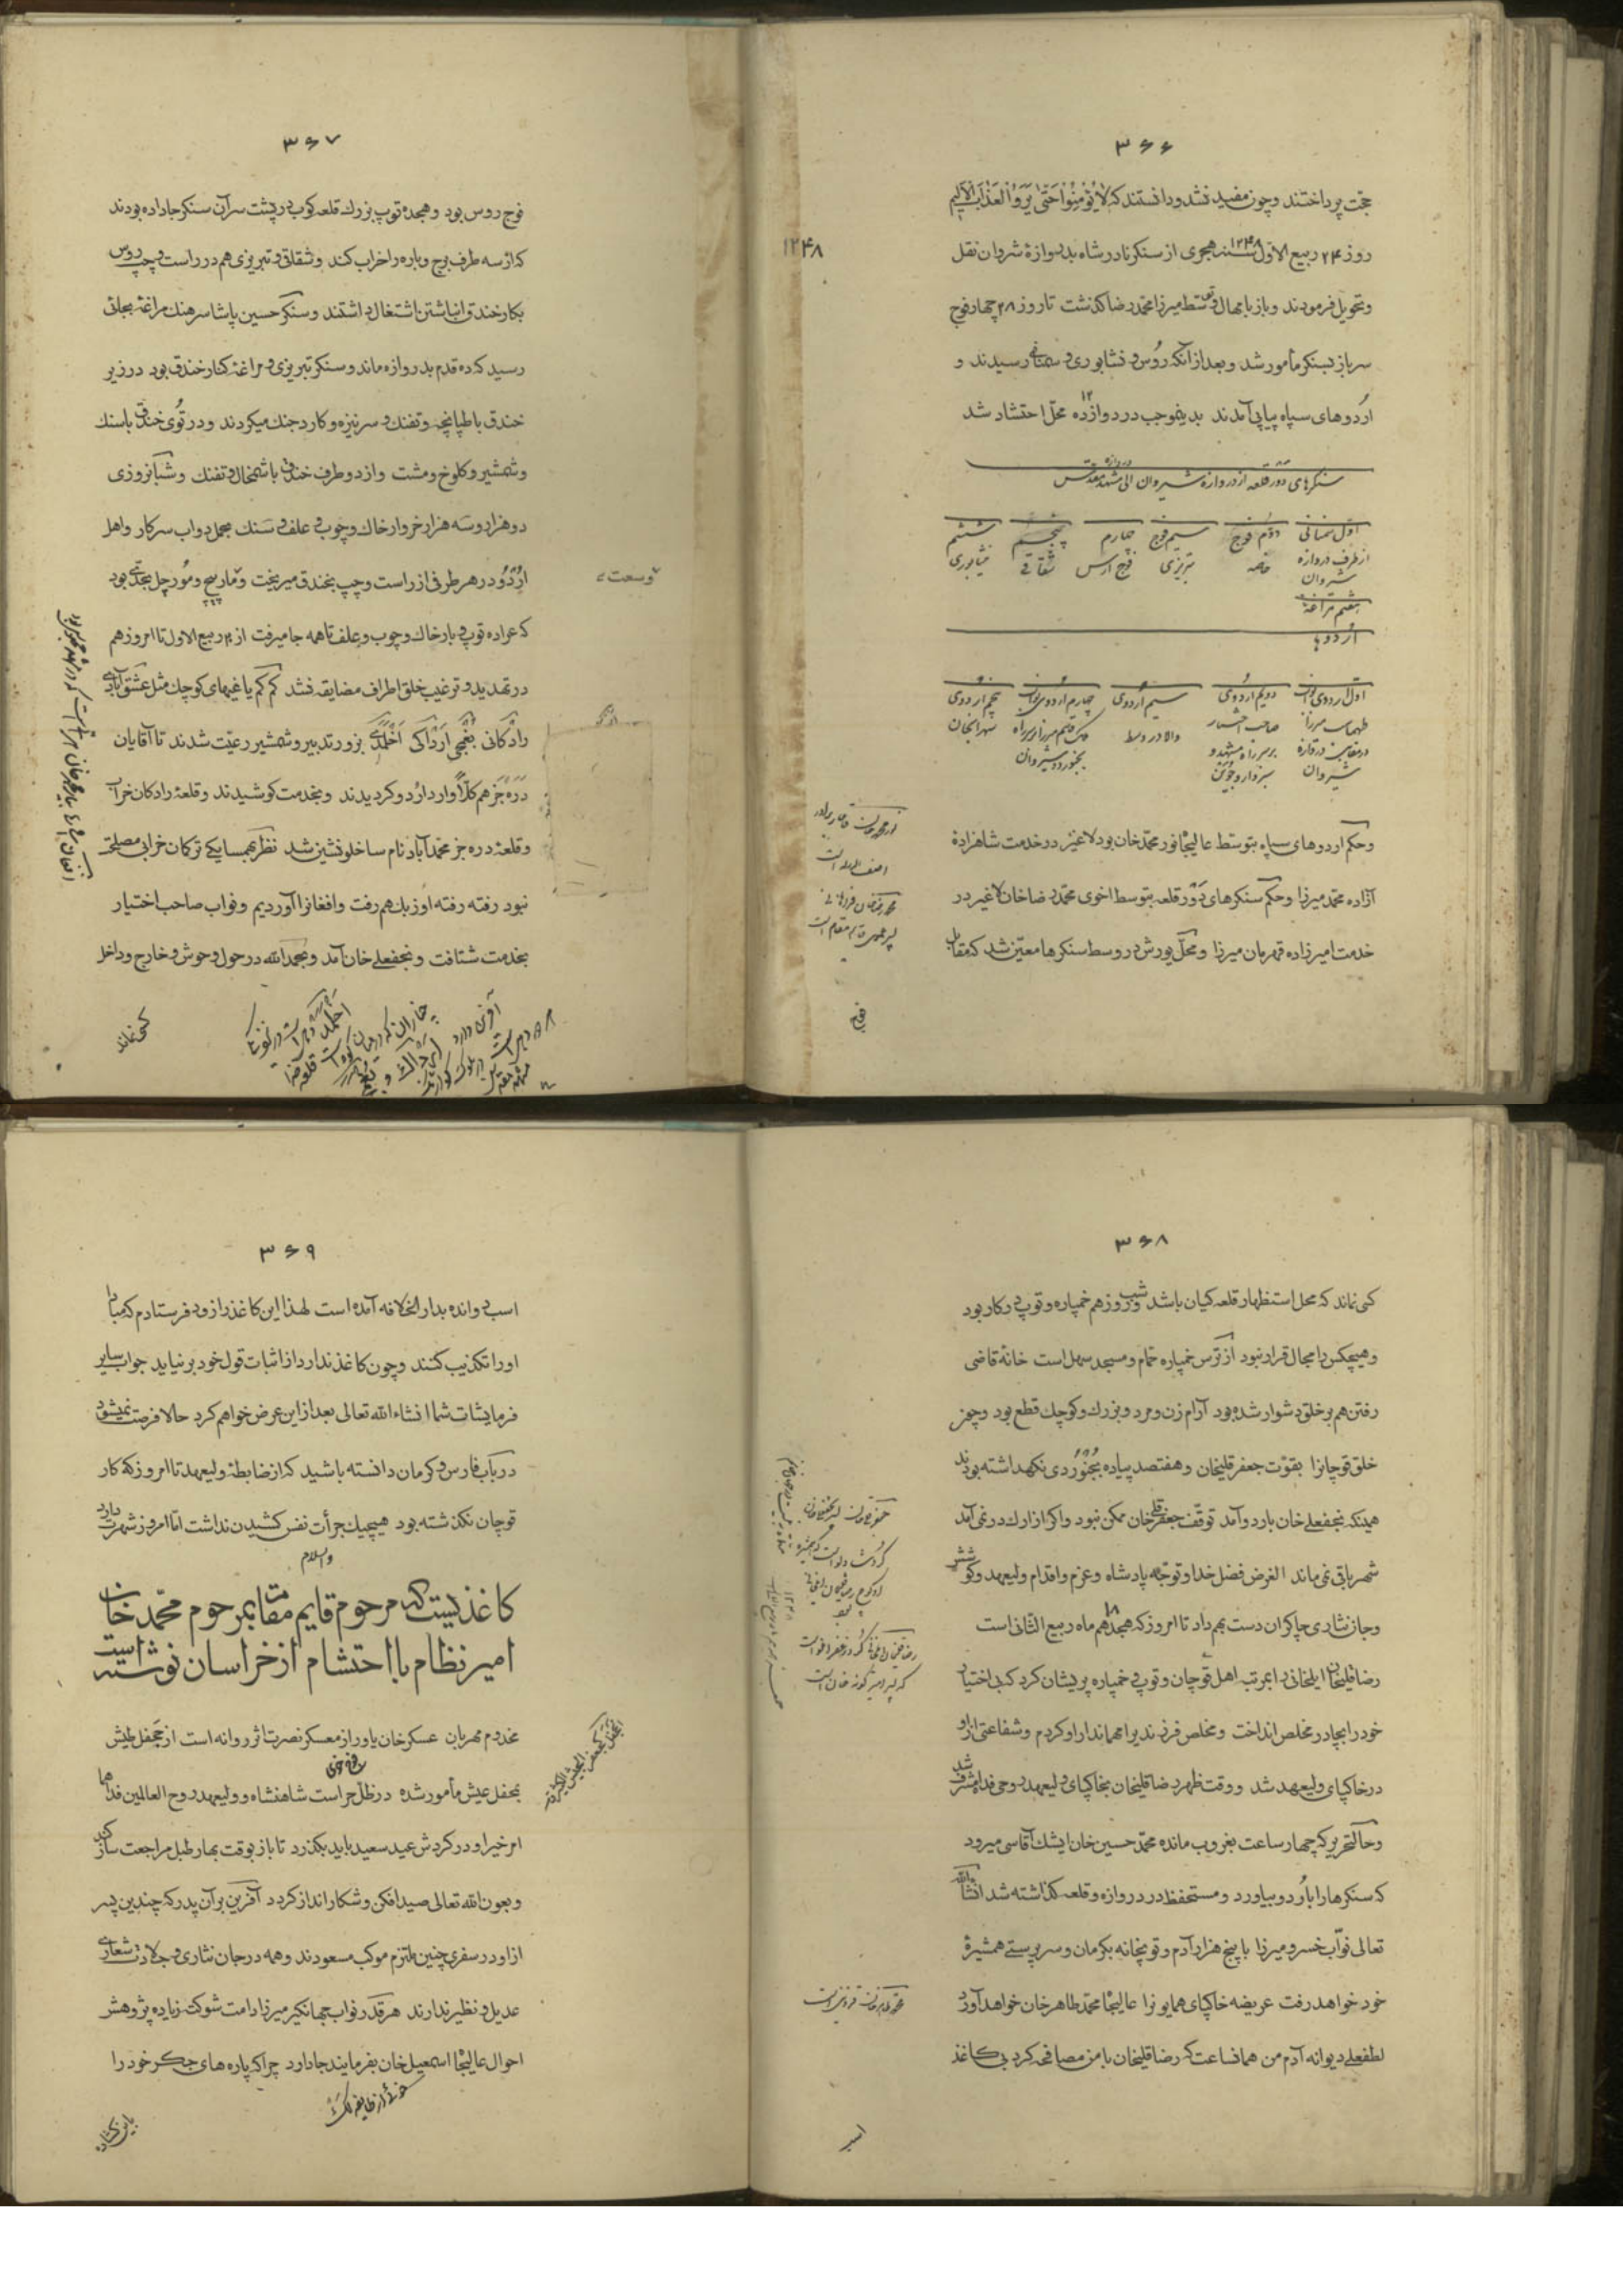 ۳۶۶
حجت پرداختند وچون مفید نشد ودانستند که لایؤمنوا حتی یروا العذاب الالیم
روز ۲۴ ربیع الاول ۱۲۴۸ سنه هجری از سنکر نادرشاه بدروازهٔ شروان نقل
۱۲۴۸
وتحویل فرمودند وباز بامهال وتوسط میرزا محمد رضا کذشت تا روز ۲۸ چهار فوج
سرباز بسنکر مأمور شد وبعد از آنکه روس و نشابوری و سمنانی رسیدند و
اردوهای سپاه پیاپی آمدند بدینموجب در دوازده ۱۲ محل احتشاد شد
سنکرهای دور قلعه از دروازهٔ شیروان الی دروازه مشهد مقدس
اول سمنانی دوم فوج سیم فوج چهارم پنجم ششم
از طرف دروازه خاصه تبریزی فوج ارس شقاقی نیشابوری
شیروان
هفتم مراغه
اردوها
اول اردوی نواب دویم اردوی سیم اردوی چهارم اردوی نواب پنجم اردوی
طهماسب میرزا صاحب اختیار والا در وسط ملک قاسم میرزا بر سر راه سهرابخان
در مقابل دروازه بر سر راه مشهد و بجنورد و شیروان
شیروان سبزوار و جوین
وحکم اردوهای سپاه بتوسط عالیجاه نور محمد خان بود لاغیر در خدمت شاهزادهٔ
آزاده محمد میرزا وحکم سنکرهای دور قلعه بتوسط اخوی محمد رضا خان لاغیر در
خدمت امیرزاده قهرمان میرزا ومحل یورش در وسط سنکرها معین شد که مقابل
نور محمد خان قاجار برادر
آصف الدوله است
فوج
۳۶۷
فوج روس بود وهجده توپ بزرك قلعه کوب در پشت سر آن سنکر جا داده بودند
که از سه طرف برج وباره را خراب کند وشقاقی و تبریزی هم در راست وچپ روس
بکار خندق انباشتن اشتغال داشتند وسنکر حسین پاشا سرهنك مراغه بجائی
رسید که ده قدم بدروازه ماند وسنکر تبریزی و مراغهٔ کنار خندق بود در زیر
خندق با طپانچه وتفنك و سر نیزه وکارد جنك میکردند ودر توی خندق با سنك
وشمشیر وکلوخ ومشت واز دو طرف خندق با شمخال وتفنك وشبانروزی
دو هزار وسه هزار خروار خاك وچوب و علف و سنك بحمل دواب سرکار واهل
اردو در هر طرفی از راست وچپ بخندق میریخت ومارپیچ ومورچل بحدی بود
وسعت
که عراده توپ و بار خاك وچوب وعلف تا همه جا میرفت از ۲۰ ربیع الاول تا امروز هم
در تهدید وترغیب خلق اطراف مضایقه نشد کم کم یاغیهای کوچك مثل عشق آبادی
رادکانی بغمجی ارداکی اخلمدی بزور تدبیر وشمشیر رعیت شدند تا آقایان
دره جز هم کلا وارد اردو کردیدند وبخدمت کوشیدند وقلعهٔ رادکان خراب
وقلعهٔ دره جز محمد آباد نام ساخلو نشین شد نظر بهمسایکی ترکمان خرابی مصلحت
نبود رفته رفته اوزبك هم رفت وافغانرا آوردیم ونواب صاحب اختیار
بخدمت شتافت ونجفعلی خان آمد وبحمد الله در حول وحوش وخارج وداخل
کسی نماند
۳۶۸
کسی نماند که محل استظهار قلعه کیان باشد شب وروز هم خمپاره وتوپ در کار بود
وهیچکس را مجال قرار نبود از ترس خمپاره حمام ومسجد سهل است خانهٔ قاضی
رفتن هم بر خلق دشوار شده بود آرام زن ومرد وبزرك وکوچك قطع بود وچون
خلق قوچانرا بقوت جعفر قلیخان وهفتصد پیاده بجنوردی نکهداشته بودند
همینکه نجفعلی خان باردو آمد توقف جعفر قلی خان ممکن نبود واکر از ارك در نمی آمد
شهر باقی نمی ماند الغرض فضل خدا وتوجه پادشاه وعزم واقدام ولیعهد وکوشش
وجان نثاری چاکران دست بهم داد تا امروز که هجدهم ۱۸ ماه ربیع الثانی است
رضا قلیخان ایلخانی را بمرتبه اهل قوچان وتوپ و خمپاره پریشان کرد که بی اختیار
خود را بچادر مخلص انداخت ومخلص فرزندیرا مهماندار او کردم وشفاعتی از او
در خاکپای ولیعهد شد ووقت ظهر رضا قلیخان بخاکپای ولیعهد روحی فداه مشرف شد
وحال تحریر که چهار ساعت بغروب مانده محمد حسین خان ایشك آقاسی میرود
که سنکرها را باردو بیاورد ومستحفظ در دروازه وقلعه کذاشته شد انشاء الله
تعالی نواب خسرو میرزا با پنج هزار آدم وتوپخانه بکرمان وسرپرستی همشیرهٔ
خود خواهد رفت عریضه خاکپای همایونرا عالیجاه محمد طاهر خان خواهد آورد
محمد طاهر خان قزوینی است
لطفعلی دیوانه آدم من همان ساعت که رضا قلیخان با من مصافی کرد بی کاغذ
اسب
۳۶۹
اسب دوانده بدار الخلافه آمده است لهذا این کاغذ را زود فرستادم که مبادا
او را تکذیب کنند وچون کاغذ ندارد از اثبات قول خود بر نیاید جواب سایر
فرمایشات شما انشاء الله تعالی بعد از این عرض خواهم کرد حالا فرصت نمیشود
در باب فارس و کرمان دانسته باشید که از ضابطهٔ ولیعهد تا امروز که کار
قوچان نکذشته بود هیچیك جرأت نفس کشیدن نداشت اما امروز شهرت دارد
والسلام
کاغذیست که مرحوم قایم مقام بمرحوم محمد خان
امیر نظام با احتشام از خراسان نوشته است
مخدوم مهربان عسکر خان یاور از معسکر نصرت اثر روانه است از جحفل طیش
بمحفل عیش مأمور شده در ظل حراست شاهنشاه وولیعهد روح العالمین فداهما
امر خیر او در کردش عید سعید باید بکذرد تا باز بوقت بهار طبل مراجعت ساز کند
وبعون الله تعالی صید افکن وشکار انداز کردد آفرین بر آن پدر که چندین پسر
از او در سفری چنین ملتزم موکب مسعودند وهمه در جان نثاری و جلادت شعاری
عدیل و نظیر ندارند هر قدر نواب جهانکیر میرزا دامت شوکته زیاده پژوهش
احوال عالیجاه اسمعیل خان بفرمایند جا دارد چرا که پاره های جکر خود را